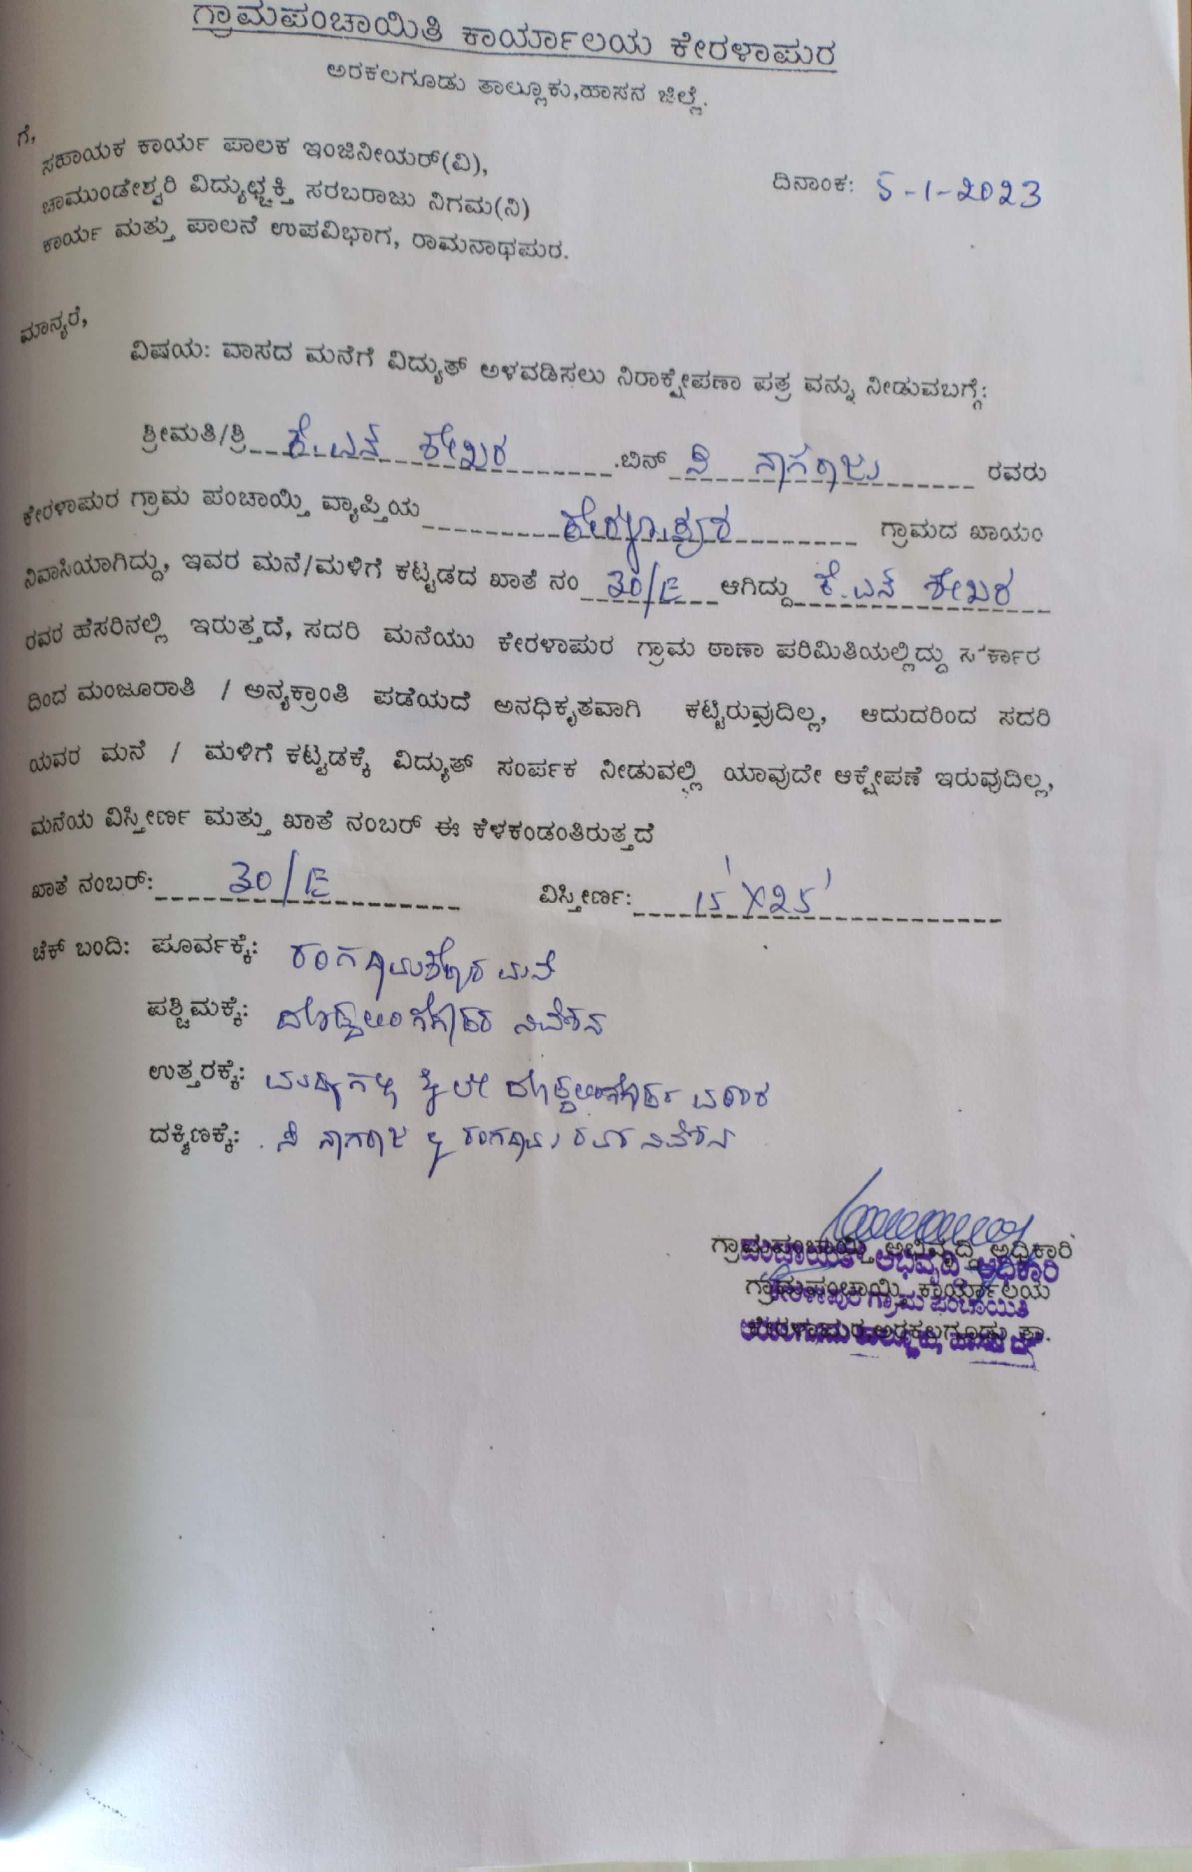 ಗ್ರಾಮಪಂಚಾಯಿತಿ ಕಾರ್ಯಾಲಯ ಕೇರಳಾಪುರ
ಅರಕಲಗೂಡು ತಾಲ್ಲೂಕು,ಹಾಸನ ಜಿಲ್ಲೆ.
ಗೆ,
ಸಹಾಯಕ ಕಾರ್ಯ ಪಾಲಕ ಇಂಜಿನೀಯರ್(ವಿ),
ಚಾಮುಂಡೇಶ್ವರಿ ವಿದ್ಯುಚ್ಛಕ್ತಿ ಸರಬರಾಜು ನಿಗಮ(ನಿ) ದಿನಾಂಕ: 5-1-2023
ಕಾರ್ಯ ಮತ್ತು ಪಾಲನೆ ಉಪವಿಭಾಗ, ರಾಮನಾಥಪುರ.
ಮಾನ್ಯರೆ,
ವಿಷಯ: ವಾಸದ ಮನೆಗೆ ವಿದ್ಯುತ್ ಅಳವಡಿಸಲು ನಿರಾಕ್ಷೇಪಣಾ ಪತ್ರ ವನ್ನು ನೀಡುವಬಗ್ಗೆ:
ಶ್ರೀಮತಿ/ಶ್ರಿ ಕೆ.ಎನ್ ಶೇಖರ .ಬಿನ್ ನಾಗರಾಜು ರವರು
ಕೇರಳಾಪುರ ಗ್ರಾಮ ಪಂಚಾಯ್ತಿ ವ್ಯಾಪ್ತಿಯ ಕೇರಳಾಪುರ ಗ್ರಾಮದ ಖಾಯಂ
ನಿವಾಸಿಯಾಗಿದ್ದು, ಇವರ ಮನೆ/ಮಳಿಗೆ ಕಟ್ಟಡದ ಖಾತೆ ನಂ 30/E ಆಗಿದ್ದು ಕೆ.ಎನ್ ಶೇಖರ
ರವರ ಹೆಸರಿನಲ್ಲಿ ಇರುತ್ತದೆ, ಸದರಿ ಮನೆಯು ಕೇರಳಾಪುರ ಗ್ರಾಮ ಠಾಣಾ ಪರಿಮಿತಿಯಲ್ಲಿದ್ದು ಸರ್ಕಾರ
ದಿಂದ ಮಂಜೂರಾತಿ / ಅನ್ಯಕ್ರಾಂತಿ ಪಡೆಯದೆ ಅನಧಿಕೃತವಾಗಿ ಕಟ್ಟಿರುವುದಿಲ್ಲ, ಆದುದರಿಂದ ಸದರಿ
ಯವರ ಮನೆ / ಮಳಿಗೆ ಕಟ್ಟಡಕ್ಕೆ ವಿದ್ಯುತ್ ಸಂರ್ಪಕ ನೀಡುವಲ್ಲಿ ಯಾವುದೇ ಆಕ್ಷೇಪಣೆ ಇರುವುದಿಲ್ಲ,
ಮನೆಯ ವಿಸ್ತೀರ್ಣ ಮತ್ತು ಖಾತೆ ನಂಬರ್ ಈ ಕೆಳಕಂಡಂತಿರುತ್ತದೆ
ಖಾತೆ ನಂಬರ್: 30/E ವಿಸ್ತೀರ್ಣ: 15'X25'
ಚೆಕ್ ಬಂದಿ: ಪೂರ್ವಕ್ಕೆ: ಮನೆ
ಪಶ್ಚಿಮಕ್ಕೆ: ನಿವೇಶನ
ಉತ್ತರಕ್ಕೆ:
ದಕ್ಷಿಣಕ್ಕೆ: ನಾಗರಾಜ ನಿವೇಶನ
ಗ್ರಾಮಪಂಚಾಯ್ತಿ ಅಭಿವೃದ್ದಿ ಅಧಿಕಾರಿ
ಗ್ರಾಮಪಂಚಾಯ್ತಿ ಕಾರ್ಯಾಲಯ
ಕೇರಳಾಪುರ ಅರಕಲಗೂಡು ತಾ.
ಪಂಚಾಯಿತಿ ಅಭಿವೃದ್ಧಿ ಅಧಿಕಾರಿ
ಕೇರಳಾಪುರ ಗ್ರಾಮ ಪಂಚಾಯಿತಿ